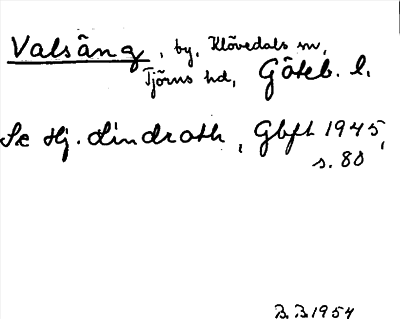 Valsäng, by, Klövedals sn,
Tjörns hd, Göteb. l.
Se Hj. Lindroth, Gbft 1945,
s. 80
B.B.1954